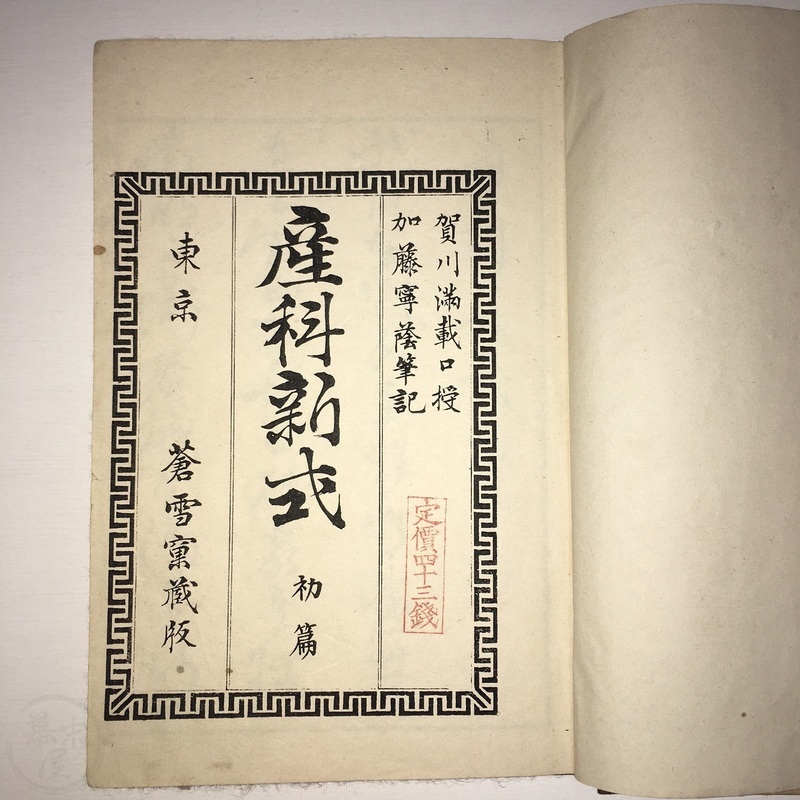 賀川満載口授
加藤寧蔭筆記
定價四十三錢
産科新式
初篇
東京
蒼雪窠藏版